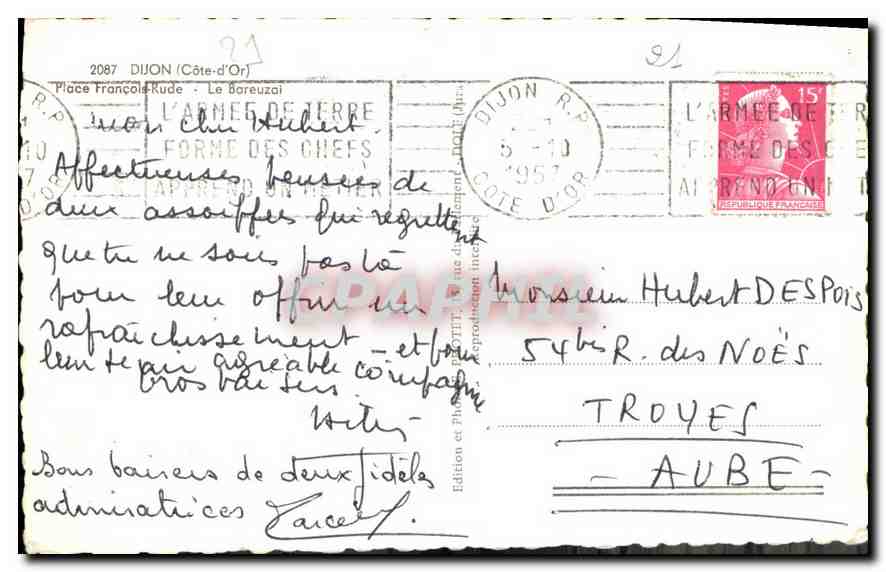 2087 DIJON (Côte-d'Or)
Place François-Rude - Le Bareuzai
mon cher Hubert.
Affectueuses pensées de
deux assoiffées qui regrettent
que tu ne sois pas là
pour leur offrir un
rafraichissement - et pour
leur tenir agréable compagnie
Gros baisers
Bons baisers de deux fidèles
admiratrices
L'ARMEE DE TERRE
FORME DES CHEFS
APPREND UN METIER
R.P.
10
7
D'OR
DIJON R.P.
5 -10
1957
COTE D'OR
L'ARMEE DE TER
FORME DES CHE
APPREND UN MET
15F
POSTES
REPUBLIQUE FRANÇAISE
Edition et Photo PROTET, rue du Gouvernement - DOLE (Jura)
Reproduction interdite
CPAPHIL
Monsieur Hubert DESPOIS
54bis R. des NOËS
TROYES
- AUBE -